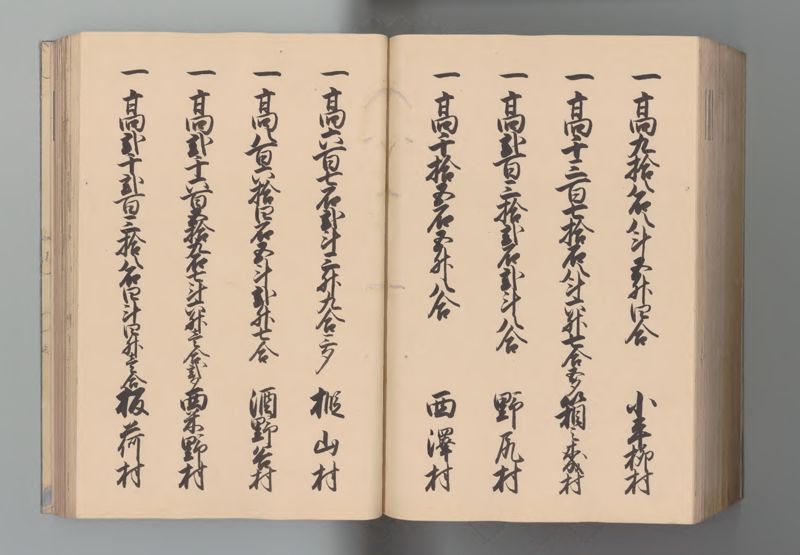 一高九拾八石八斗五升四合 小平柳村
一高千三百七拾石八斗六升七合五夕 箱之森村
一高弐百三拾弐石弐斗八合 野尻村
一高千拾五石五升八合 西澤村
一高六百七石弐斗三升九合三夕 樅山村
一高八百六拾四石五斗弐升七合 酒野谷村
一高弐千六百五拾石七斗六升壱合弐夕 西茱野村
一高弐千弐百三拾八石四斗四升壱合 板荷村